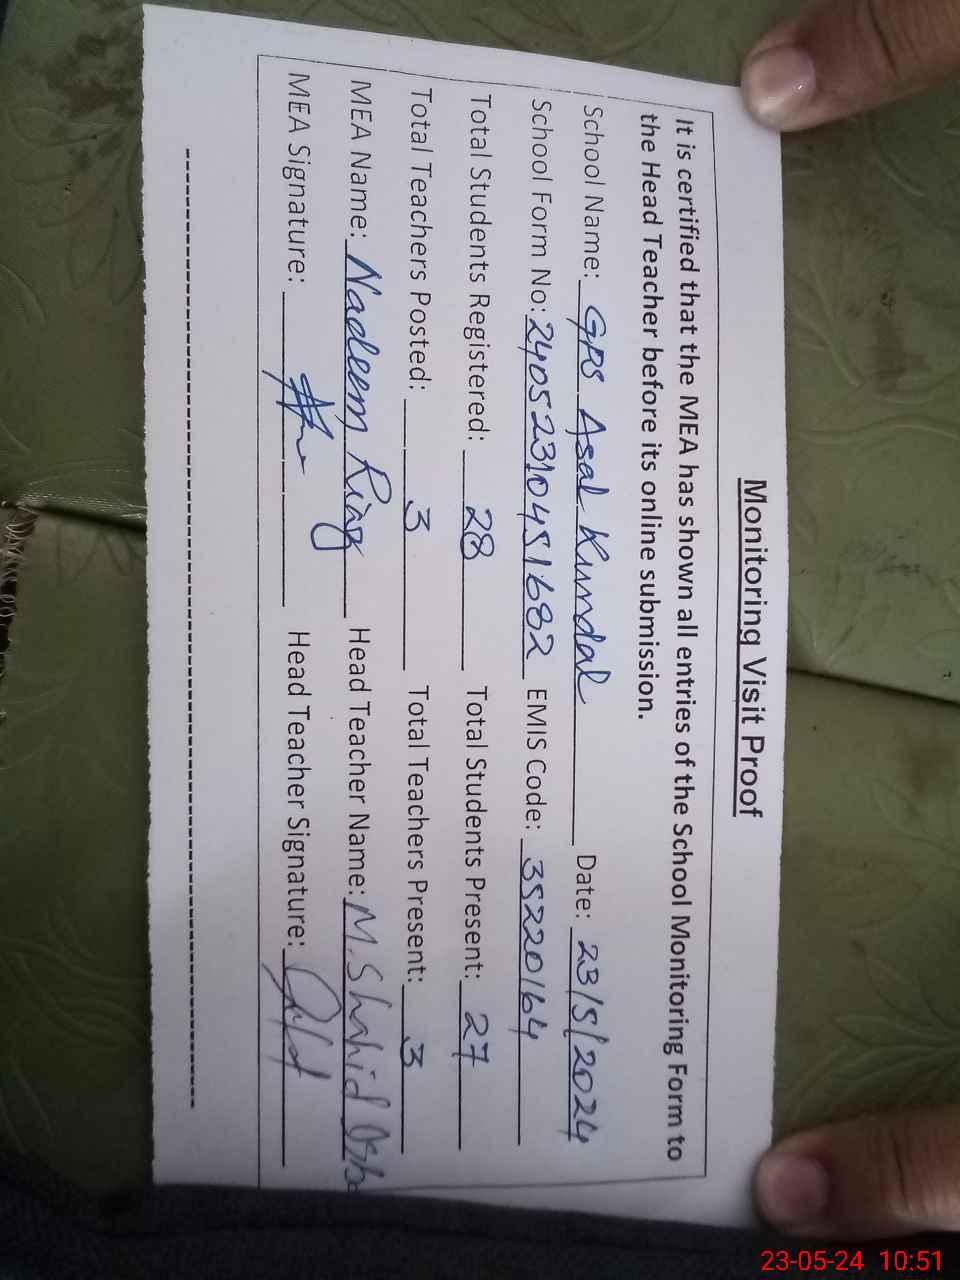 Monitoring Visit Proof
It is certified that the MEA has shown all entries of the School Monitoring Form to
the Head Teacher before its online submission.
School Name: GPS Asal Kumdal Date: 23/5/2024
School Form No: 24052310451682 EMIS Code: 35220164
Total Students Registered: 28 Total Students Present: 27
Total Teachers Posted: 3 Total Teachers Present: 3
MEA Name: Nadeem Riaz Head Teacher Name: M. Shahid
MEA Signature: Head Teacher Signature:
23-05-24 10:51